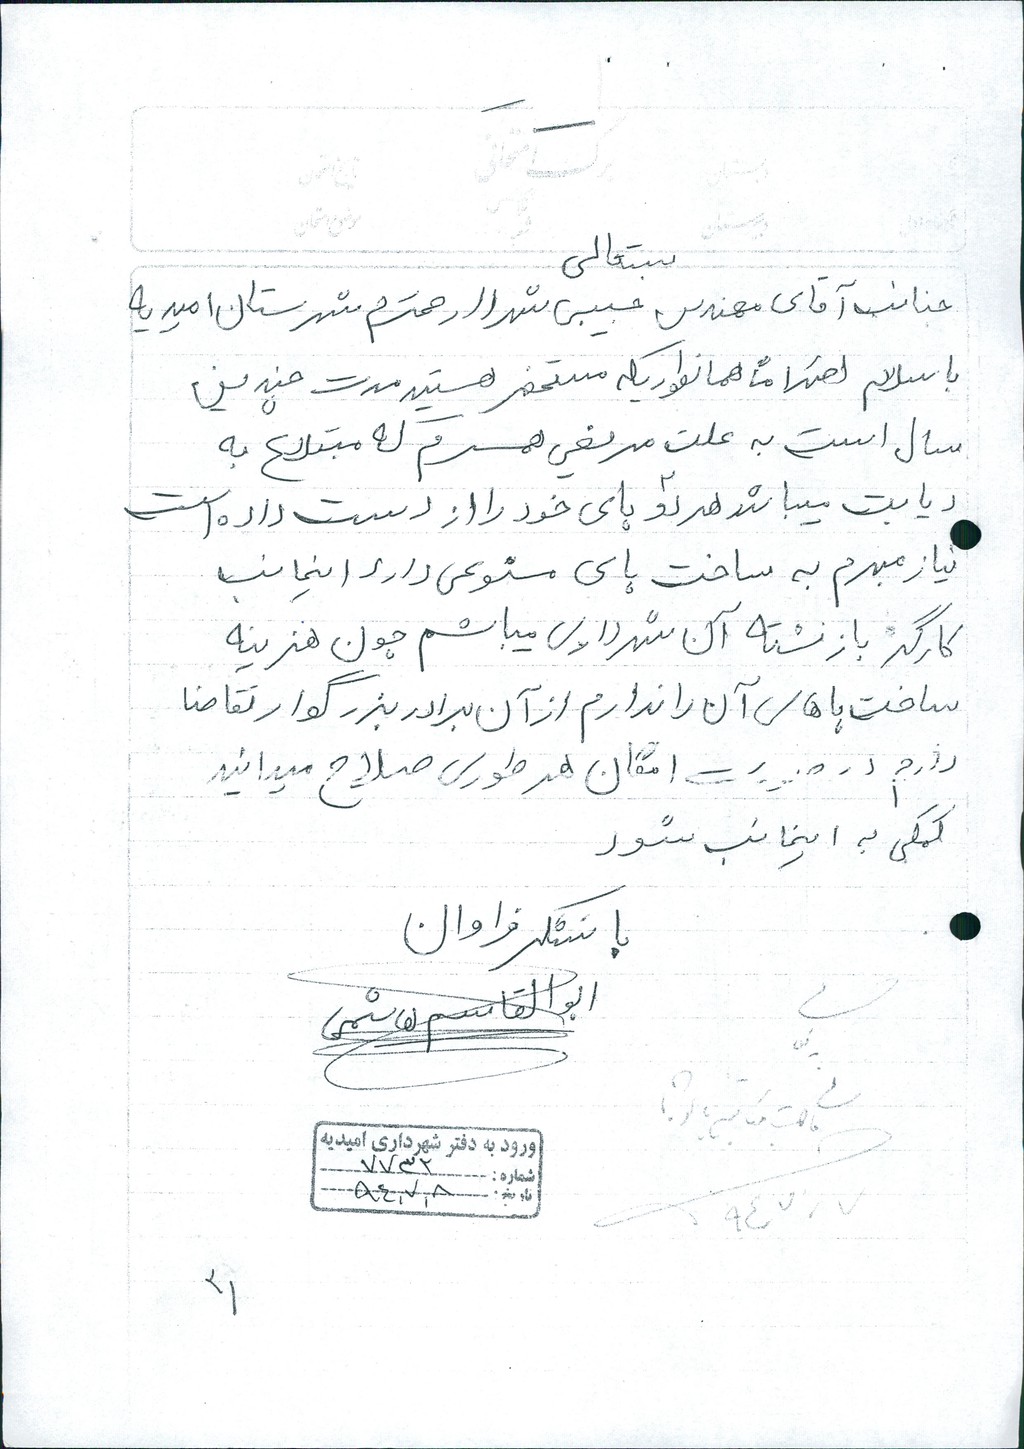 برگ امتحانی
دبستان
تاریخ امتحان
دبیرستان
موضوع امتحان
بسمتعالی
جناب آقای مهندس حبیبی شهردار محترم شهرستان امیدیه
با سلام احتراماً همانطوریکه مستحضر هستید مدت چندین
سال است به علت مریضی همسرم که مبتلاع به
دیابت میباشد هر دو پای خود را از دست داده است
نیاز مبرم به ساخت پای مصنوعی دارد اینجانب
کارگر بازنشته آن شهرداری میباشم چون هزینه
ساخت پاهای آن را ندارم از آن برادر بزرگوار تقاضا
دارم در صورت امکان هر طوری صلاح میدانید
کمکی به اینجانب شود
با تشکر فراوان
ابوالقاسم هاشمی
ورود به دفتر شهرداری امیدیه
شماره: ۷۷۳۲
تاریخ: ۹۴,۷,۸
۹۴,۷,۷